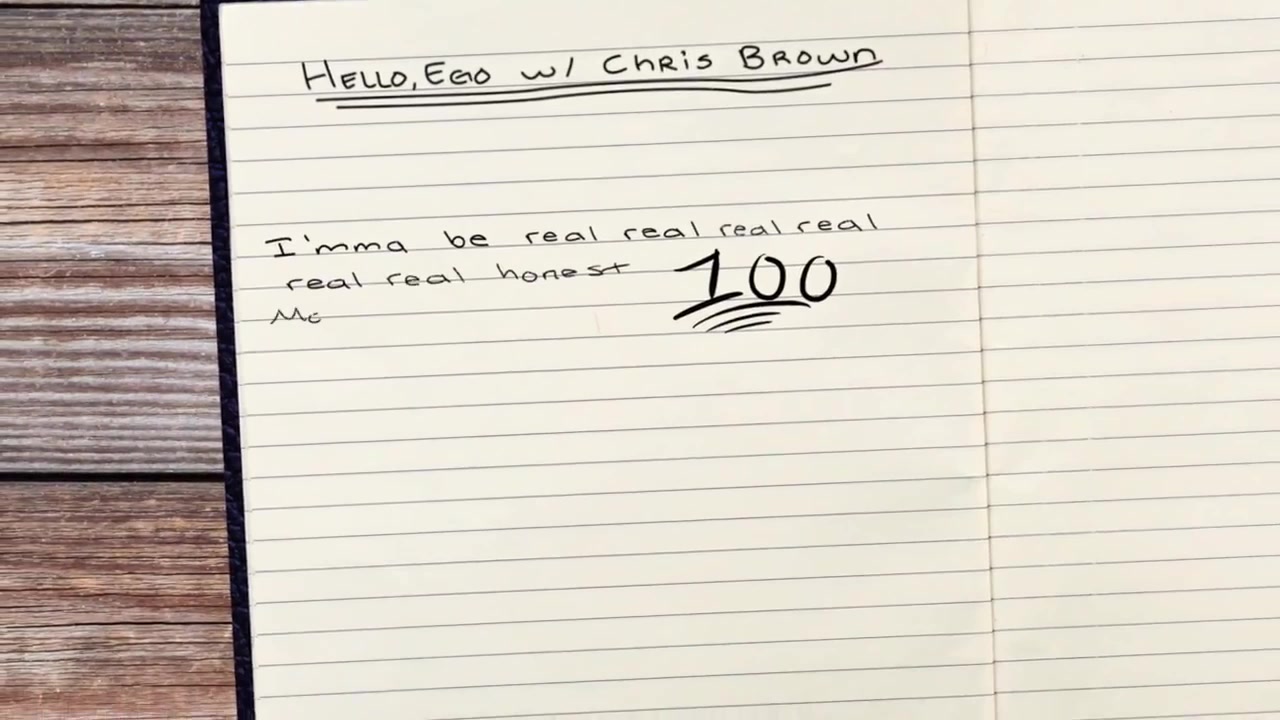 HELLO, EGO W/ CHRIS BROWN
I'mma be real real real real
real real honest 100
Mc